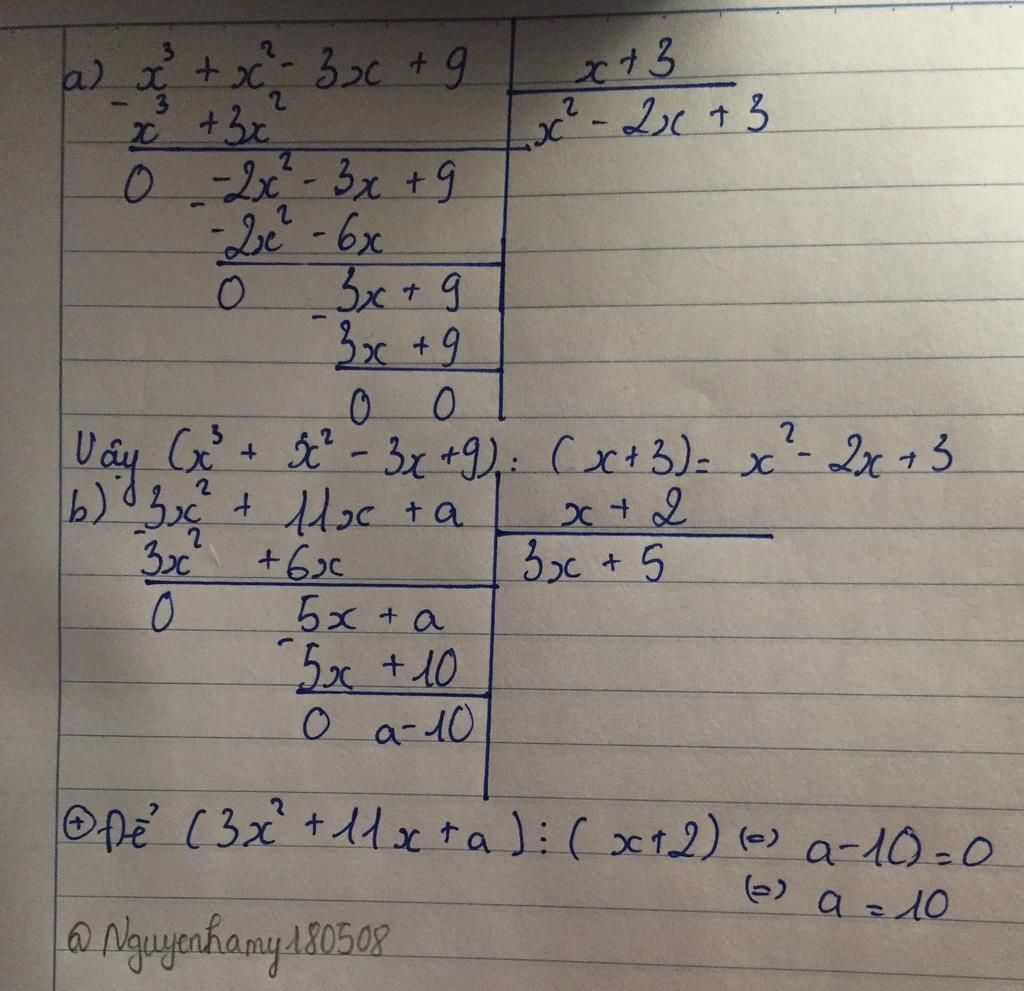 a) x³ + x² - 3x + 9 | x + 3
- x³ + 3x² | x² - 2x + 3
0 - 2x² - 3x + 9
- -2x² - 6x
0 3x + 9
- 3x + 9
0 0
Vậy (x³ + x² - 3x + 9) : (x + 3) = x² - 2x + 3
b) 3x² + 11x + a | x + 2
- 3x² + 6x | 3x + 5
0 5x + a
- 5x + 10
0 a - 10
⊕ Để (3x² + 11x + a) ⋮ (x + 2) (=) a - 10 = 0
(=) a = 10
@Nguyenhamy180508